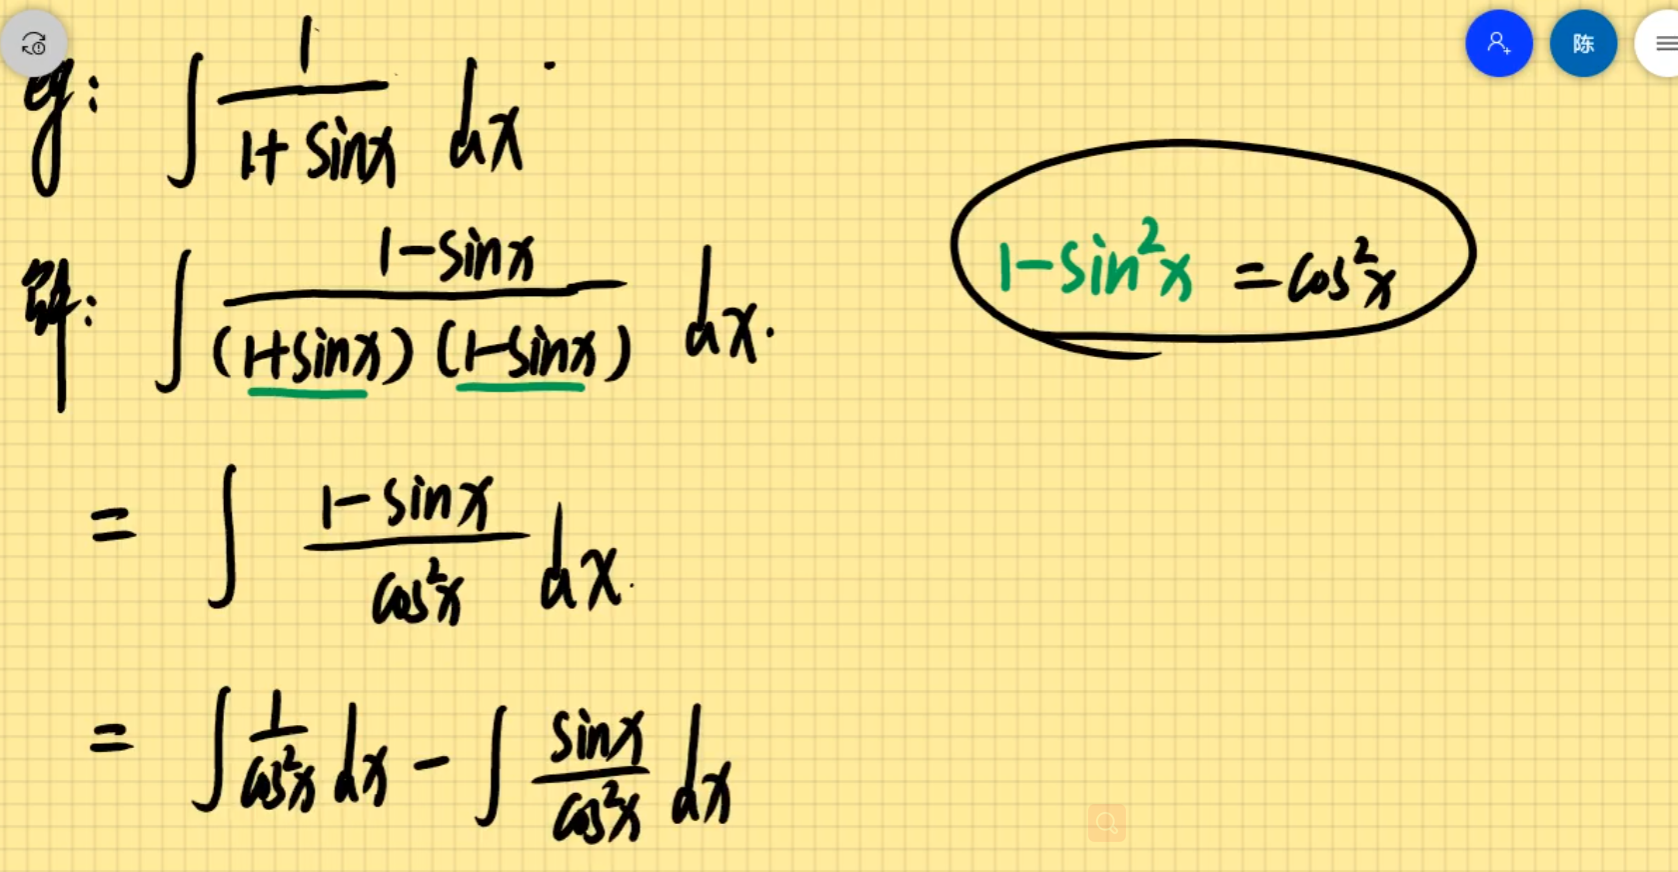 eg: ∫ 1/(1+sinx) dx
解: ∫ (1-sinx)/((1+sinx)(1-sinx)) dx.
= ∫ (1-sinx)/(cos²x) dx.
= ∫ 1/(cos²x) dx - ∫ sinx/(cos²x) dx
1-sin²x = cos²x
陈